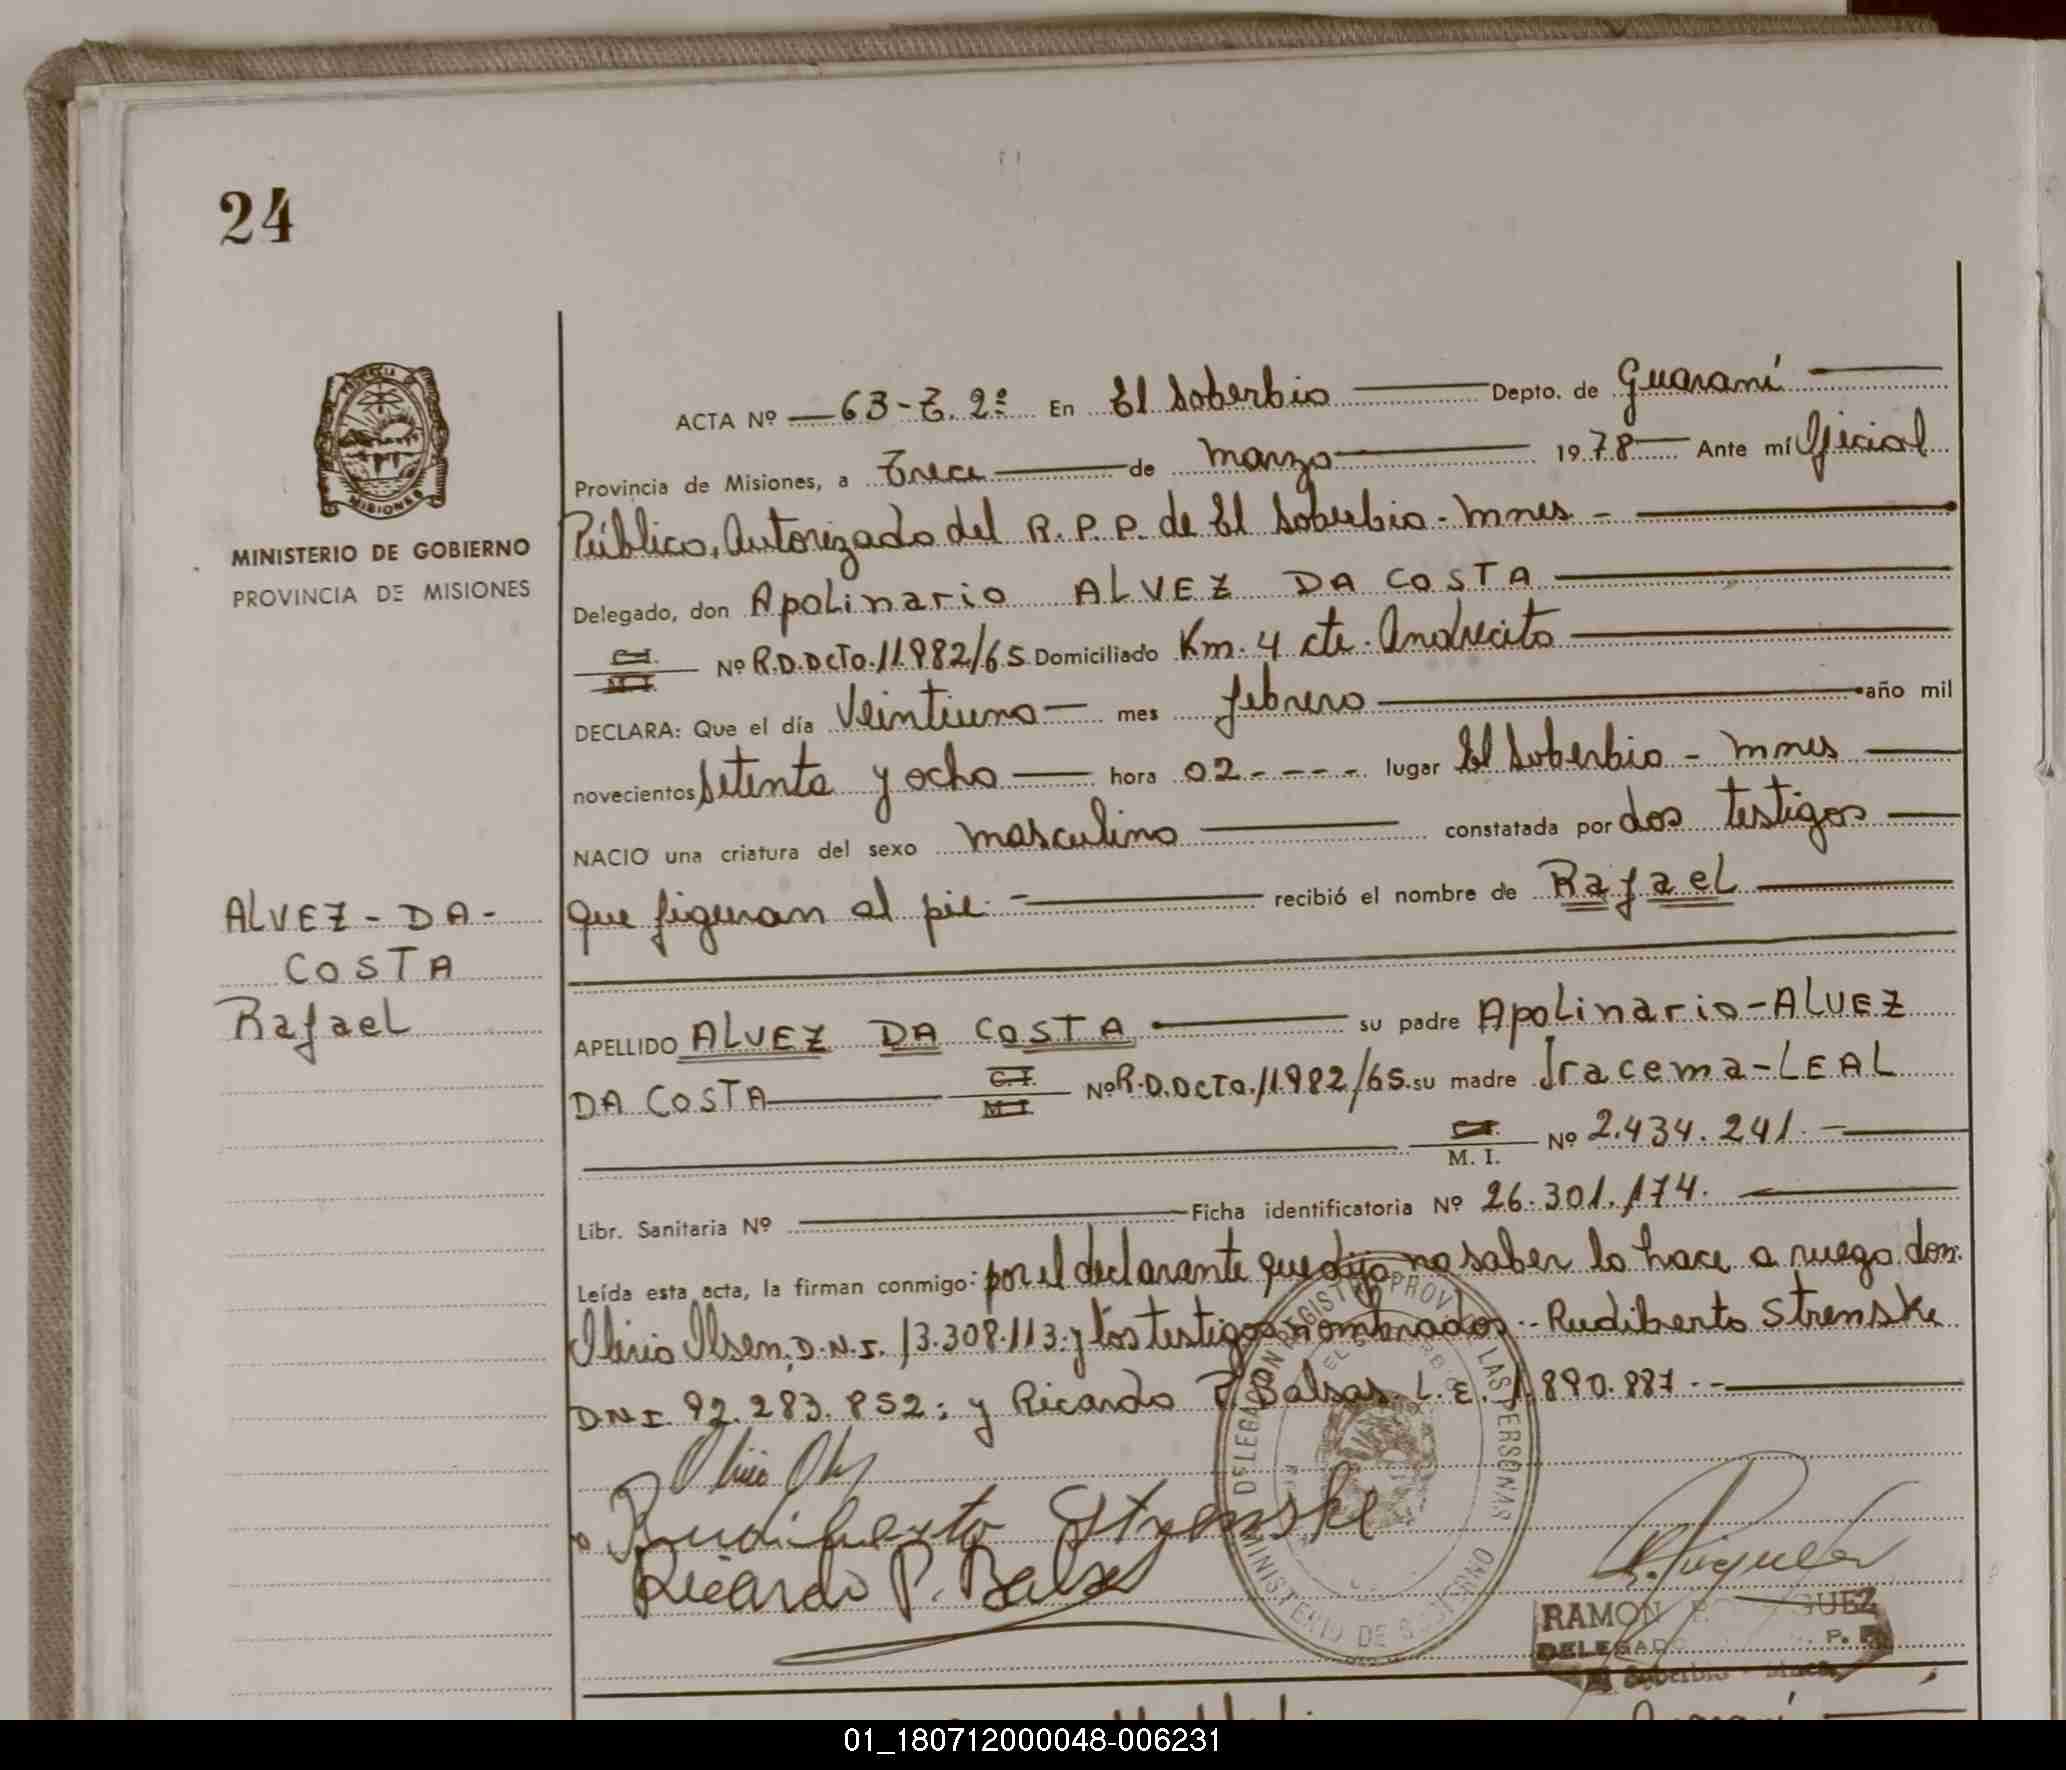 24
ACTA Nº 63-T. 2º En El Soberbio Depto. de Guaraní
Provincia de Misiones, a Trece de Marzo 1978 Ante mí Oficial
Público, Autorizado del R.P.P. de El Soberbio - Mnes -
MINISTERIO DE GOBIERNO
PROVINCIA DE MISIONES
Delegado, don Apolinario ALVEZ DA COSTA
C.I.
M.I.
Nº R.D.DCTO.11.982/65 Domiciliado Km. 4 cte. Andrecito
DECLARA: Que el día Veintiuno mes febrero año mil
novecientos Setenta y ocho hora 02 - - - - lugar El Soberbio - Mnes
NACIO una criatura del sexo Masculino constatada por dos testigos
que figuran al pie - recibió el nombre de Rafael
ALVEZ - DA -
COSTA
Rafael
APELLIDO ALVEZ DA COSTA su padre Apolinario - ALVEZ
DA COSTA C.I. M.I. Nº R.D.DCTO.11.982/65. su madre Iracema - LEAL
C.I.
M. I. Nº 2.434.241. -
Libr. Sanitaria Nº Ficha identificatoria Nº 26.301.174.
Leída esta acta, la firman conmigo: por el declarante que dijo no saber lo hace a ruego don:
Olirio Olsen, D.N.I. 13.308.113. y los testigos nombrados -- Rudiberto Strenske
D.N.I. 92.283.852; y Ricardo P. Balsas. L.E. 1.890.887 --
Rudiberto Strenske
Ricardo P. Balsas
DELEGACION REGISTRO PROV. LAS PERSONAS
MINISTERIO DE GOBIERNO
RAMON RODRIGUEZ
DELEGADO R. P. P.
El Soberbio - Mnes.
01_180712000048-006231